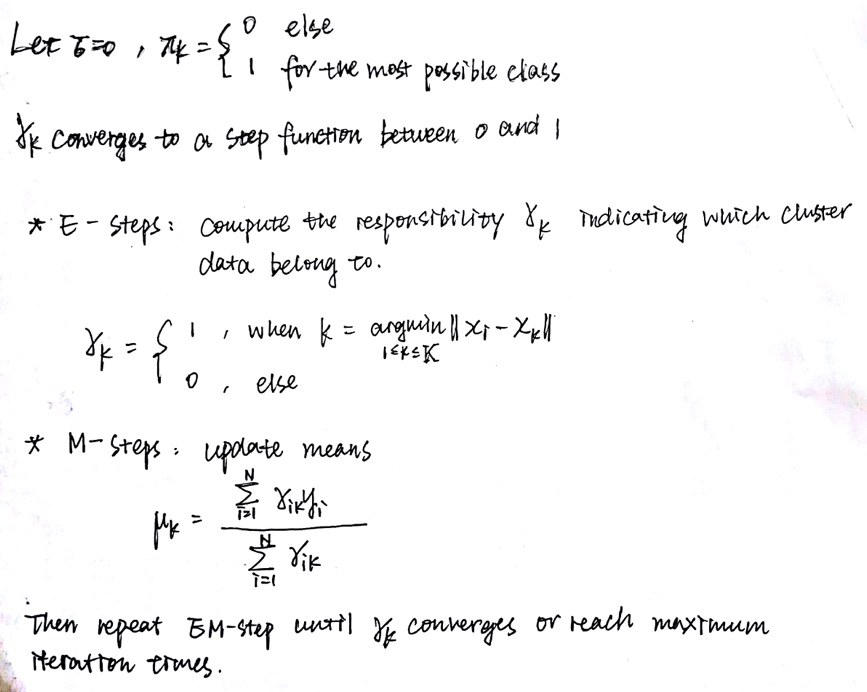 Let σ=0 , πk = { 0 else
1 for the most possible class
γk converges to a step function between 0 and 1
* E-steps: compute the responsibility γk indicating which cluster
data belong to.
γk = { 1 , when k = argmin ‖xi - xk‖
1≤k≤K
0 , else
* M-steps: update means
μk = ∑_{i=1}^{N} γik yi / ∑_{i=1}^{N} γik
Then repeat EM-step until γk converges or reach maximum
iteration times.